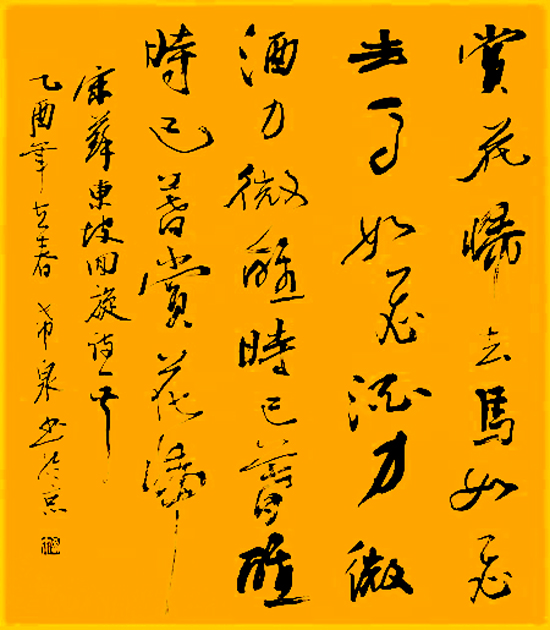 賞花歸去馬如飛
去馬如飛酒力微
酒力微醒時已暮醒
時已暮賞花歸
宋蘇東坡回旋詩一首
乙酉年立春 希泉书於京